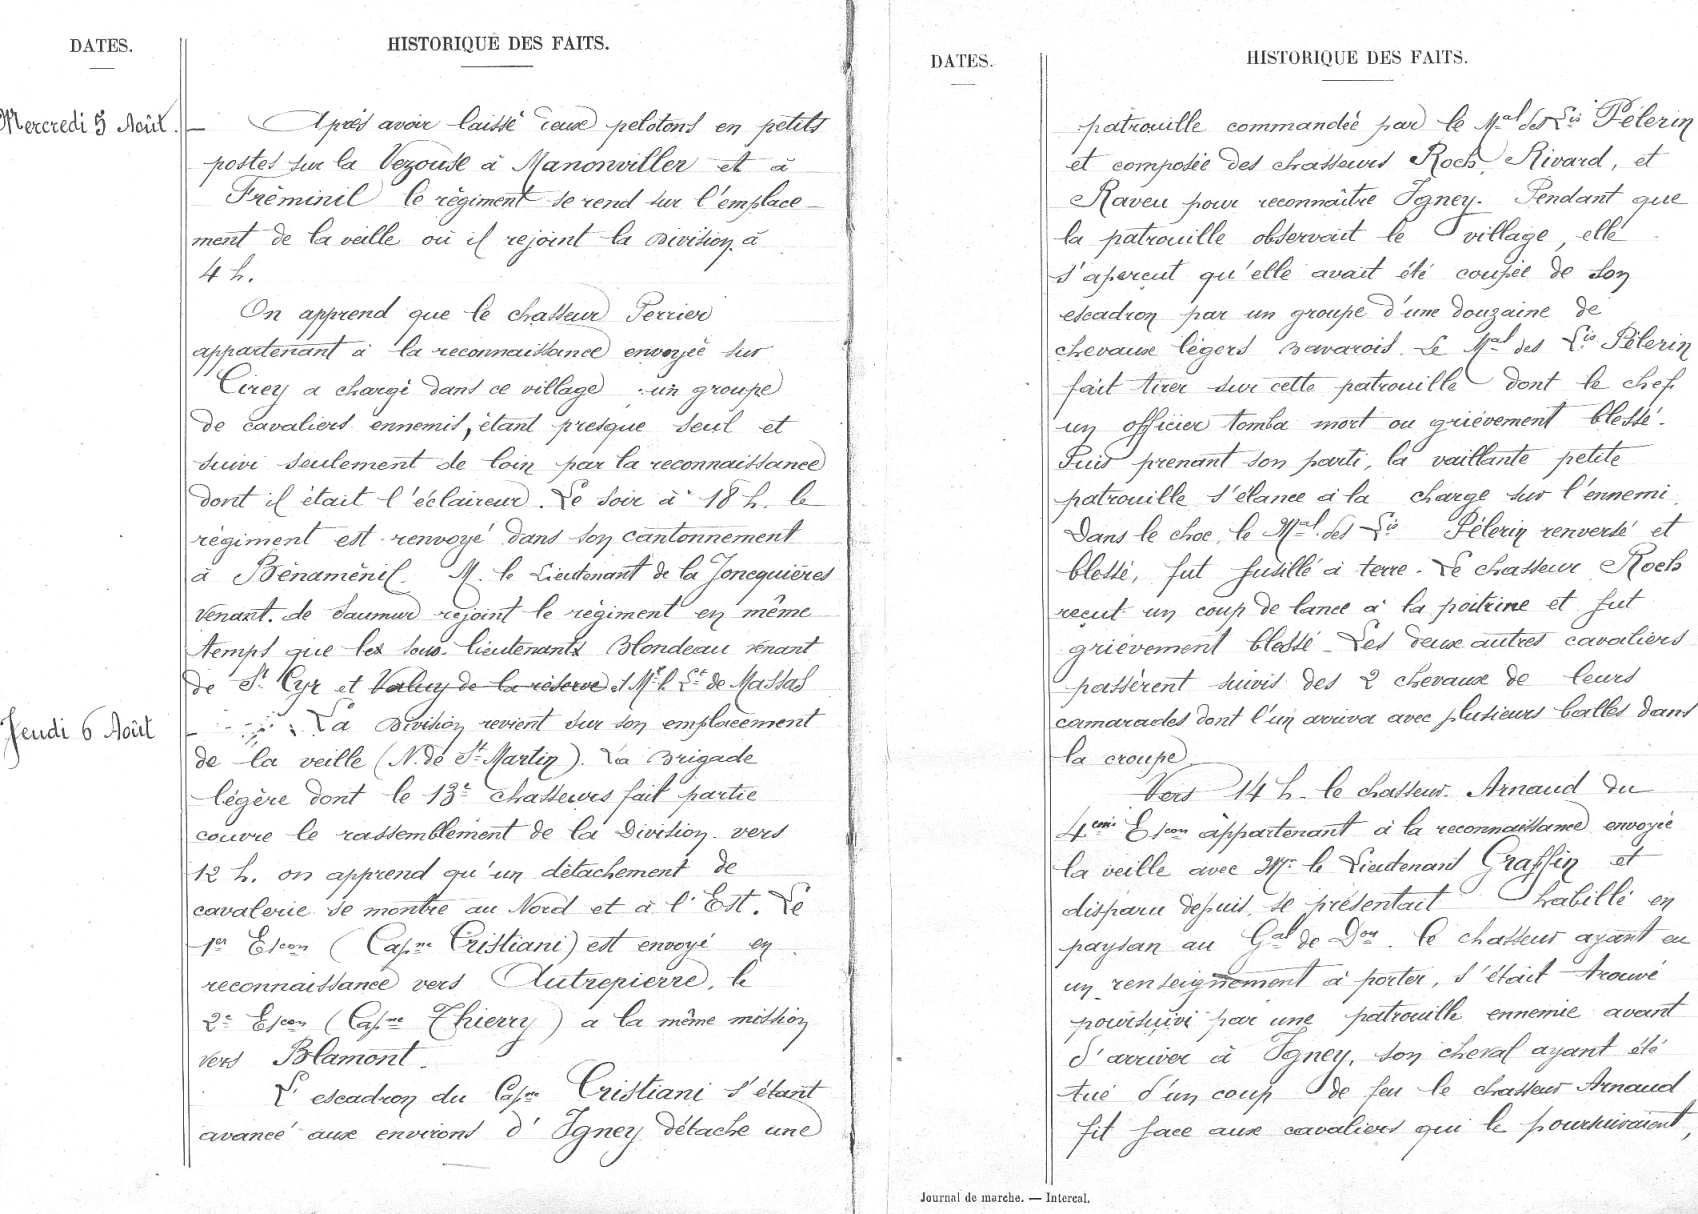 DATES.
HISTORIQUE DES FAITS.
Mercredi 5 Août.
Après avoir laissé deux pelotons en petits
postes sur la Vezouse à Manonviller et à
Fréminil le régiment se rend sur l'emplace-
ment de la veille où il rejoint la Division à
4 h.
On apprend que le chasseur Perrier
appartenant à la reconnaissance envoyée sur
Cirey a chargé dans ce village un groupe
de cavaliers ennemis, étant presque seul et
suivi seulement de loin par la reconnaissance
dont il était l'éclaireur. Le soir à 18 h. le
régiment est renvoyé dans son cantonnement
à Bénaménil. M. le Lieutenant de la Joncquières
venant de Saumur rejoint le régiment en même
temps que les sous-lieutenants Blondeau venant
de St Cyr et de la réserve et Mr l. Lt de Massas
Jeudi 6 Août
La Division revient sur son emplacement
de la veille (N. de St Martin). La Brigade
légère dont le 13e chasseurs fait partie
couvre le rassemblement de la Division. vers
12 h. on apprend qu'un détachement de
cavalerie se montre au Nord et à l'Est. Le
1er Escon (Capne Cristiani) est envoyé en
reconnaissance vers Autrepierre, le
2e Escon (Capne Thierry) a la même mission
vers Blamont.
L'escadron du Capne Cristiani s'étant
avancé aux environs d'Igney détache une
DATES.
HISTORIQUE DES FAITS.
patrouille commandée par le Mal des Lis Pélerin
et composée des chasseurs Roch, Rivard, et
Raveu pour reconnaître Igney. Pendant que
la patrouille observait le village, elle
s'aperçut qu'elle avait été coupée de son
escadron par un groupe d'une douzaine de
chevaux légers Bavarois. Le Mal des Lis Pélerin
fait tirer sur cette patrouille dont le chef
un officier tomba mort ou grièvement blessé.
Puis prenant son parti, la vaillante petite
patrouille s'élance à la charge sur l'ennemi.
Dans le choc, le Mal des Lis Pélerin renversé et
blessé, fut fusillé à terre. Le chasseur Roch
reçut un coup de lance à la poitrine et fut
grièvement blessé. Les deux autres cavaliers
passèrent suivis des 2 chevaux de leurs
camarades dont l'un arriva avec plusieurs balles dans
la croupe.
Vers 14 h. le chasseur Arnaud du
4eme Escon appartenant à la reconnaissance envoyée
la veille avec Mr le Lieutenant Graffin et
disparu depuis, se présentait habillé en
paysan au Gal de Don. le chasseur ayant eu
un renseignement à porter, s'était trouvé
poursuivi par une patrouille ennemie avant
d'arriver à Igney, son cheval ayant été
tué d'un coup de feu le chasseur Arnaud
fit face aux cavaliers qui le poursuivaient,
Journal de marche. — Intercal.